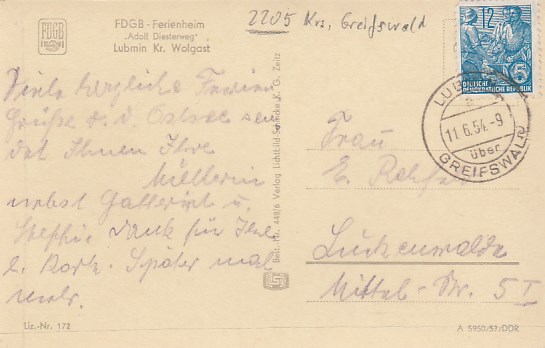 FDGB - Ferienheim
„Adolf Diesterweg"
Lubmin Kr. Wolgast
FDGB
2205 Krs. Greifswald
12
DEUTSCHE
DEMOKRATISCHE REPUBLIK
LUBMIN
a
11.6.54.-9
über
GREIFSWALD
Viele herzliche Ferien
Grüße v. d. Ostsee sen
det Ihnen Ihre
nebst u.
Dank für Ihre
l. Karte. Später mal
mehr.
Best.-Nr. 448/6 Verlag Lichtbild-K. G. Zeitz
Frau
E.
Luckenwalde
Mittel-Str. 5 I
Liz.-Nr. 172
A 5950/57/DDR